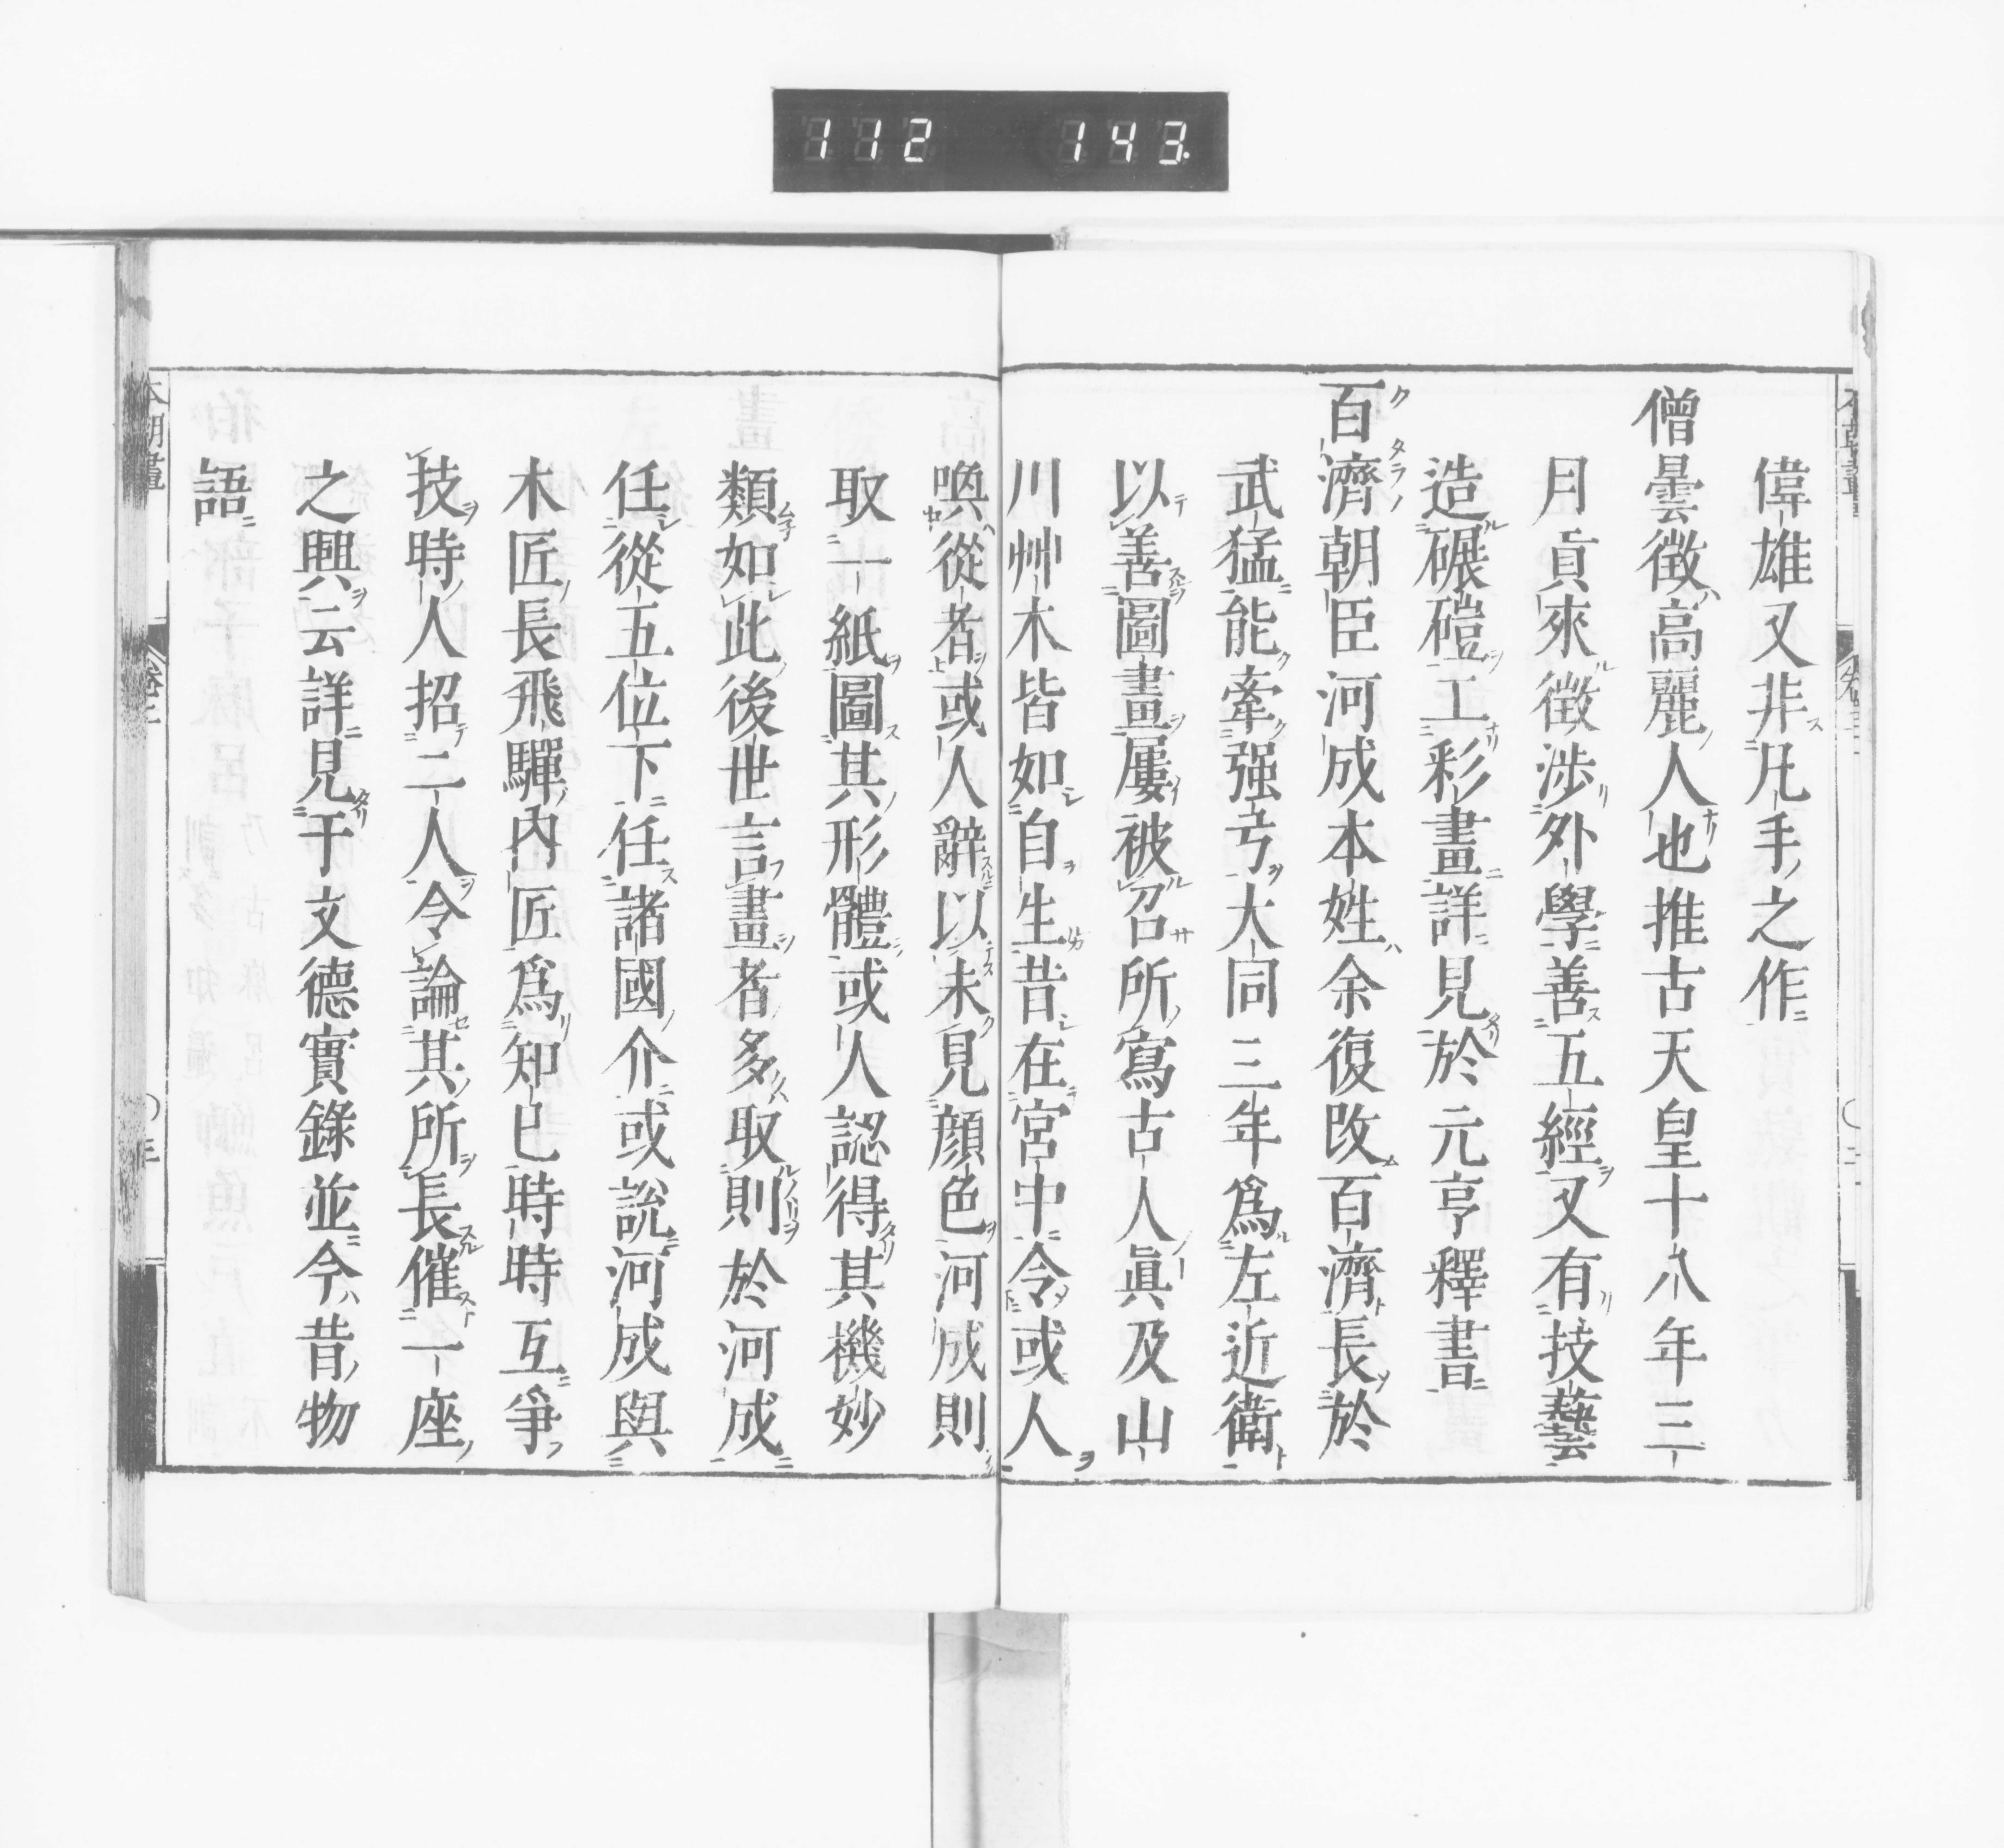 112 143
偉雄又非凡手之作
僧曇徴高麗人也推古天皇十八年三
月貢來徴渉外學善五經又有技藝
造碾磑工彩畫詳見於元亨釋書
百濟朝臣河成本姓余復改百濟長於
武猛能牽强弓大同三年爲左近衛
以善圖畫屢被召所寫古人眞及山
川艸木皆如自生昔在宮中令或人
喚從者或人辭以未見顔色河成則
取一紙圖其形體或人認得其機妙
類如此後世言畫者多取則於河成
任從五位下任諸國介或說河成與
木匠長飛驒內匠爲知己時時互爭
技時人招二人令論其所長催一座
之興云詳見于文德實錄並今昔物
語